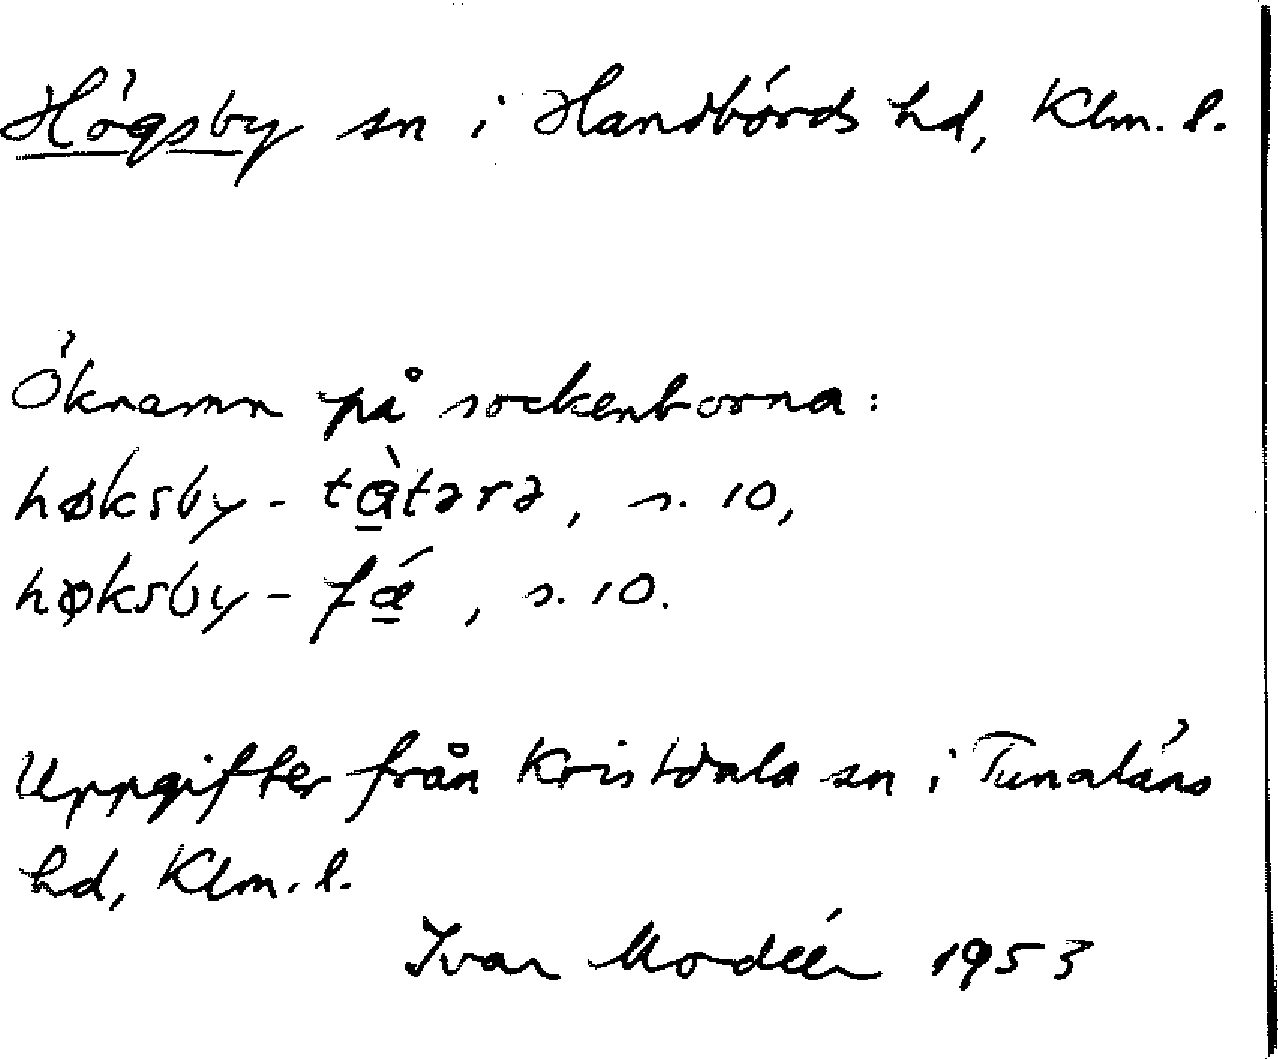 Högsby sn i Handbörds hd, Klm. l.
Öknamn på sockenborna:
høksby - tàtərə, s. 10,
høksby - fǽ, s. 10.
Uppgifter från Kristdala sn i Tunaläns
hd, Klm. l.
Ivar Modéer 1953